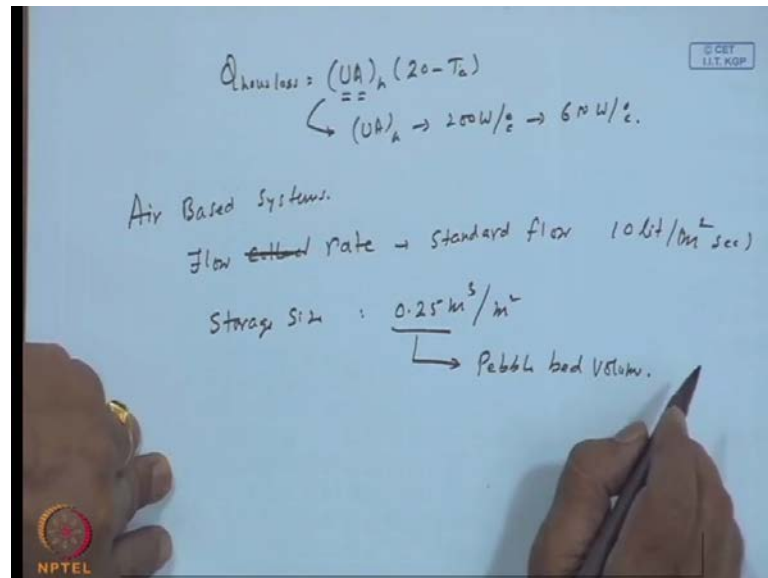 © CET
I.I.T. KGP
Qhouseloss : (UA)h (20 - Ta)
(UA)h → 200 W/°c → 600 W/°c.
Air Based Systems.
Flow rate → Standard flow 10 lit/(m² sec)
Storage Size : 0.25 m³/m²
Pebble bed Volume.
NPTEL